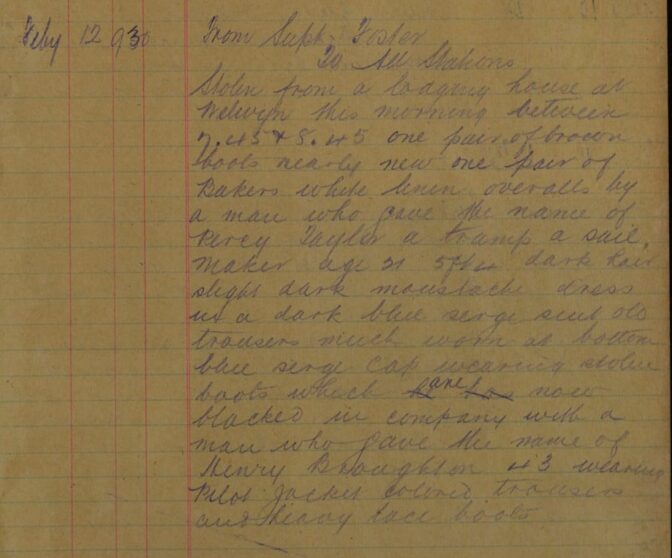 Feby 12 930 From Supt. Foster
To All Stations
Stolen from a lodging house at
Welwyn this morning between
7.45 & 8.45 one pair of brown
boots nearly new one pair of
Bakers white linen overalls by
a man who gave the name of
Percy Taylor a tramp a sail
maker age 21 5ft 4 dark hair
slight dark moustache dress
in a dark blue serge suit old
trousers much worn at bottom
blue serge cap wearing stolen
boots which are now
blacked in company with a
man who gave the name of
Henry Broughton 43 wearing
Pilot Jacket colored trousers
and heavy lace boots